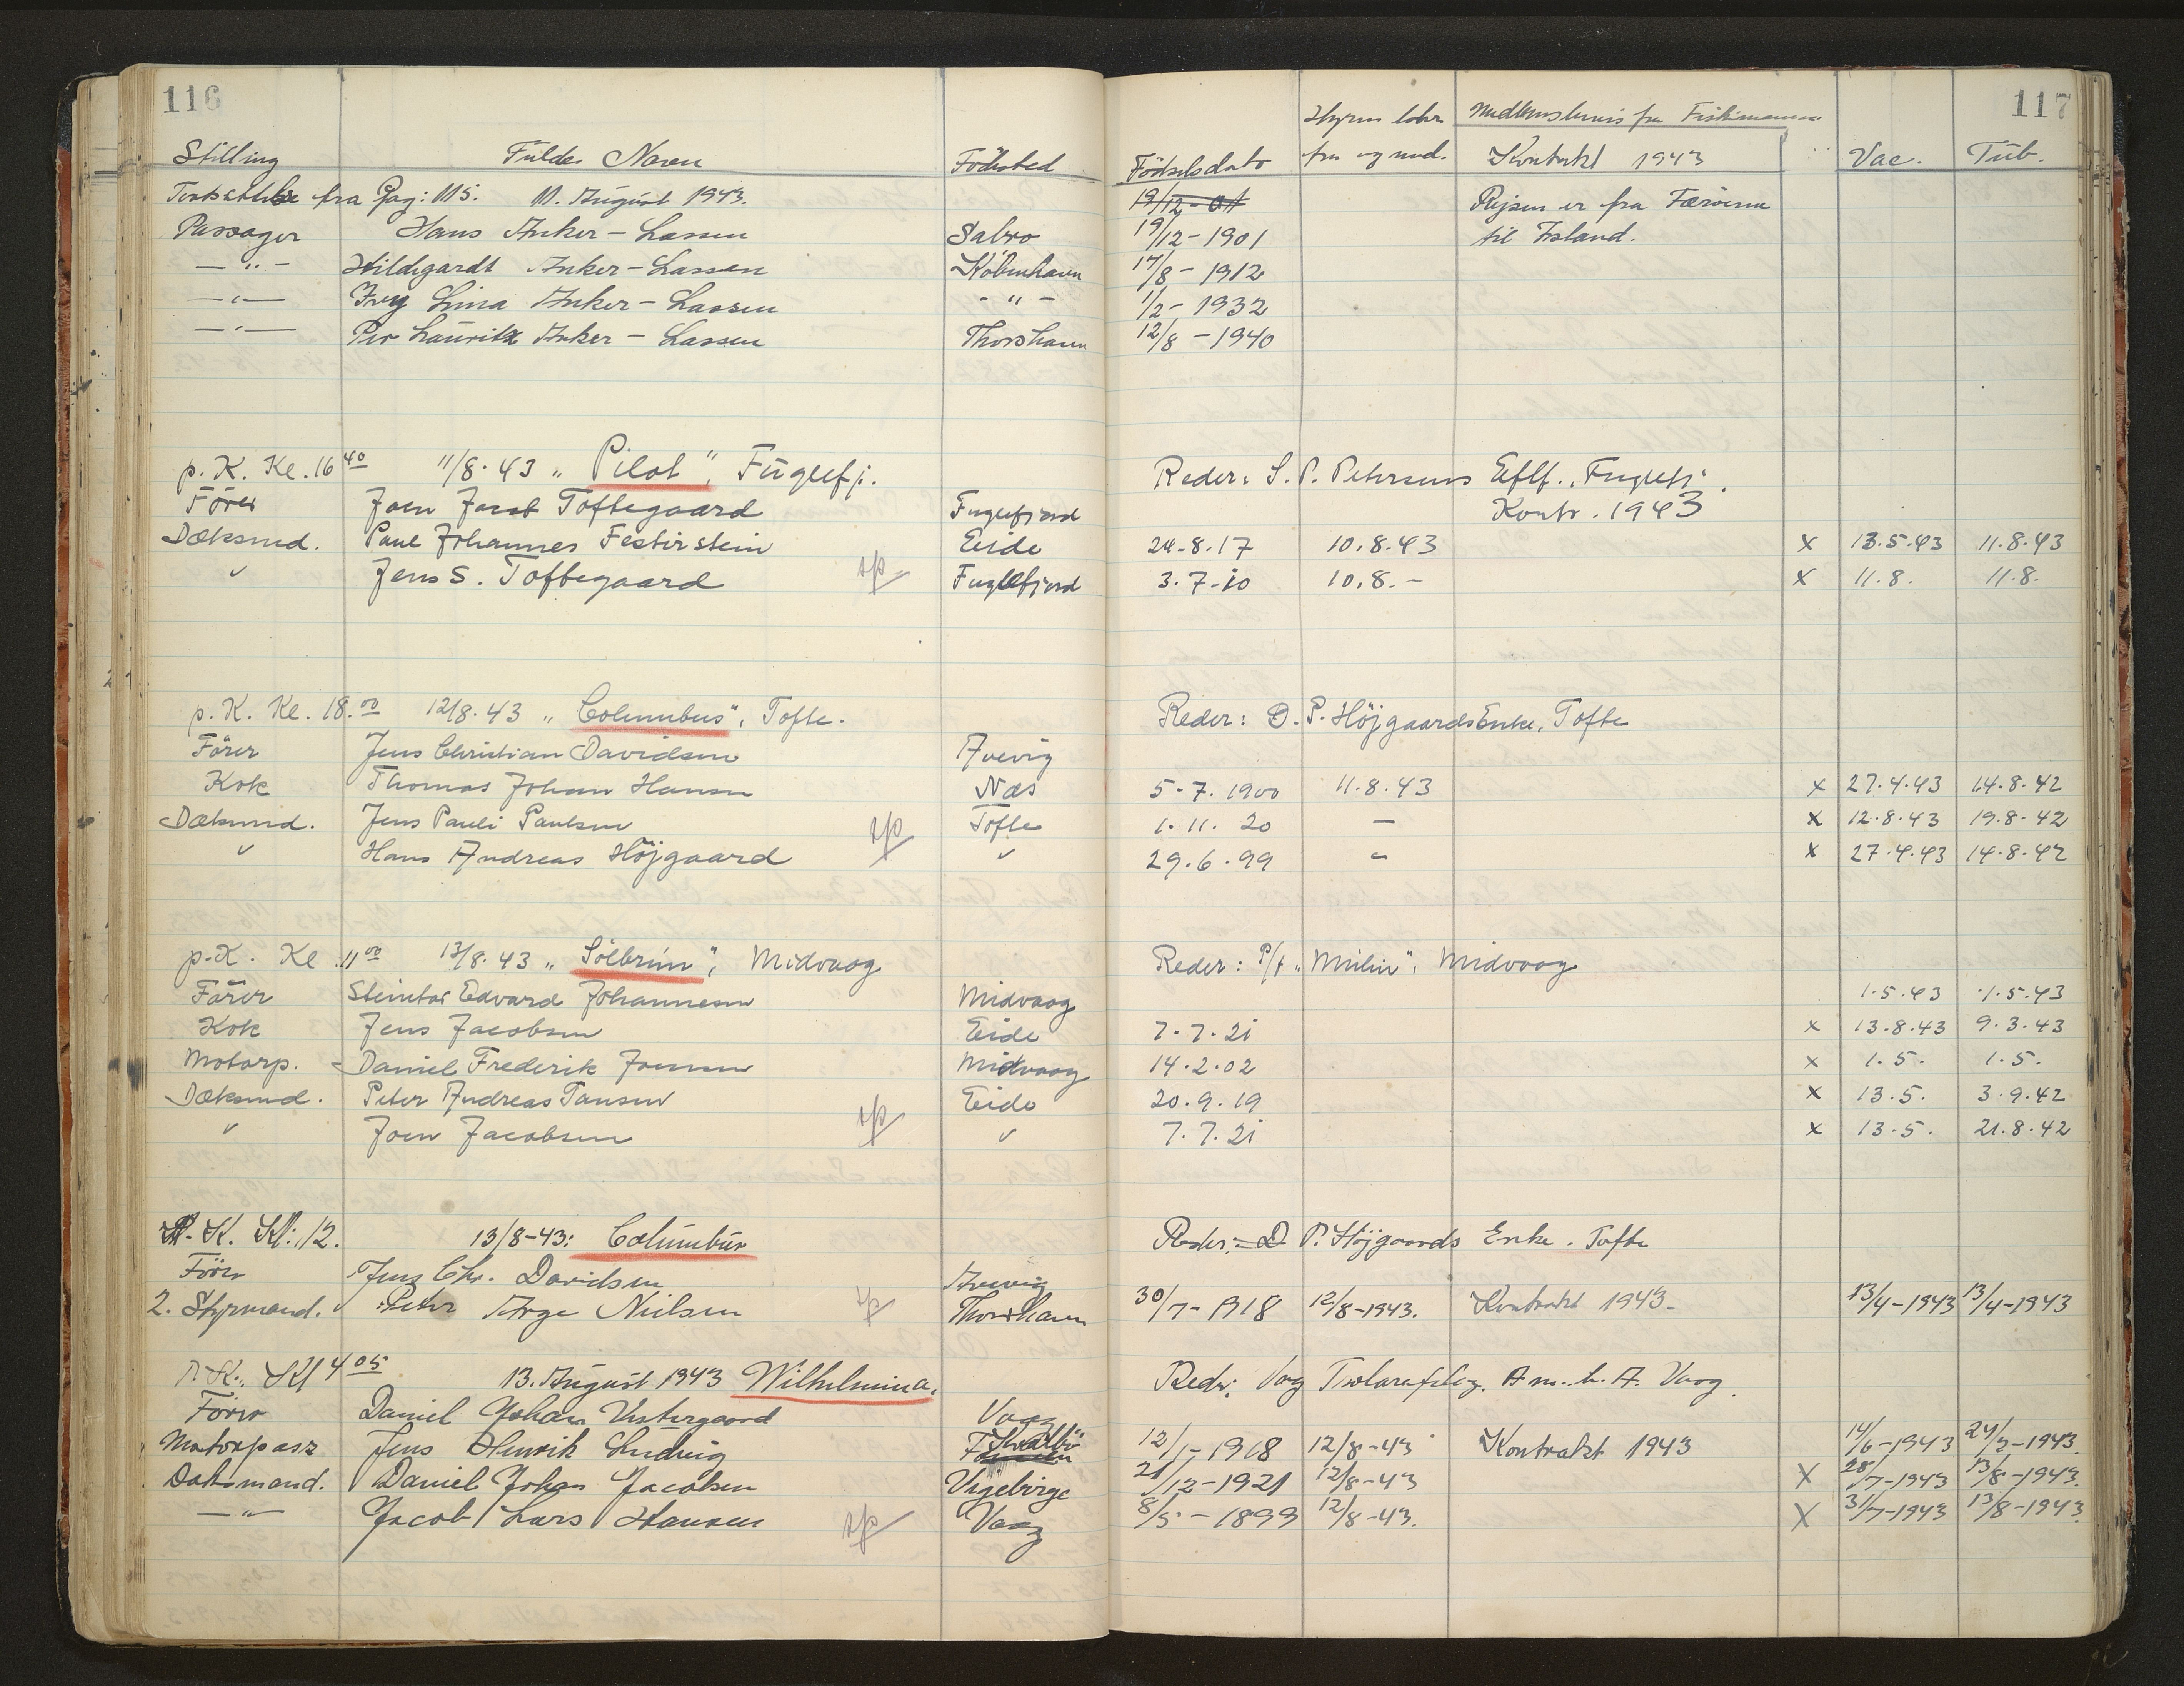 116
117
Stilling Fulde Navn Födested Födselsdato Hyren löber fra og med. Medlemsbevis fra Fiskimanna Kontrakt 1943 Vac. Tub.
Fortsættelse fra Pag: 115. 11. August 1943. 19/12-01 Rejsen er fra Færöerne
Passager Hans Anker-Lassen Sabro 19/12-1901 til Island.
-"- Hildegardt Anker-Lassen Köbenhavn 17/8-1912
-"- Ivy Lina Anker-Lassen -"- 1/2-1932
-"- Per Lauritz Anker-Lassen Thorshavn 12/8-1940
p. K. Kl. 16 40 11/8.43 "Pilot", Fuglefj. Reder: S. P. Petersens Eftf., Fuglefj.
Förer Joen Jacob Toftegaard Fuglefjord Kontr. 1943
Dæksmd. Paul Johannes Festirstein Eide 24-8.17 10.8.43 x 13.5.43 11.8.43
" Jens S. Toftegaard Fuglefjord 3.7-10 10.8.- x 11.8. 11.8.
p. K. Kl. 18.00 12/8.43 "Columbus", Tofte. Reder: D. P. Höjgaards Enke, Tofte
Förer Jens Christian Davidsen Arevig
Kok Thomas Johan Hansen Næs 5-7.1900 11.8.43 x 27.4.43 14.8.42
Dæksmd. Jens Pauli Paulsen Tofte 1.11.20 - x 12.8.43 19.8.42
" Hans Andreas Höjgaard " 29.6.99 - x 27.4.43 14.8.42
p. K. Kl. 11 00 13/8.43 "Sólbrún", Midvaag Reder: P/f "Mulin", Midvaag
Förer Steintor Edvard Johannesen Midvaag 1.5.43 1.5.43
Kok Jens Jacobsen Eide 7.7.21 x 13.8.43 9.3.43
Motorp. Daniel Frederik Joensen Midvaag 14.2.02 x 1.5. 1.5.
Dæksmd. Peter Andreas Tausen Eide 20.9.19 x 13.5. 3.9.42
" Joen Jacobsen " 7.7.21 x 13.5. 21.8.42
P. K. Kl: 12. 13/8-43: Columbus Reder: D P. Höjgaards Enke. Tofte
Förer Jens Chr. Davidsen Arevig
2. Styrmand. Peter Arge Nielsen Thorshavn 30/7-1918 12/8-1943. Kontrakt 1943- 13/4-1943 13/4-1943
P. K. Kl 4 05 13. August 1943 Wilhelmina. Reder: Vag A. m. b. A. Vaag.
Förer Daniel Johan Vestergaard Vaag
Motorpasr Jens Henrik Ludvig Kvalbö 12/1-1918 12/8-43 Kontrakt 1943 14/6-1943 24/2-1943.
Dæksmand. Daniel Johan Jacobsen Vagebirge 21/12-1921 12/8-43 X 28/7-1943 13/8-1943.
-"- Jacob Lars Hansen Vaag 8/5-1899 12/8-43. X 31/7-1943 13/8-1943.